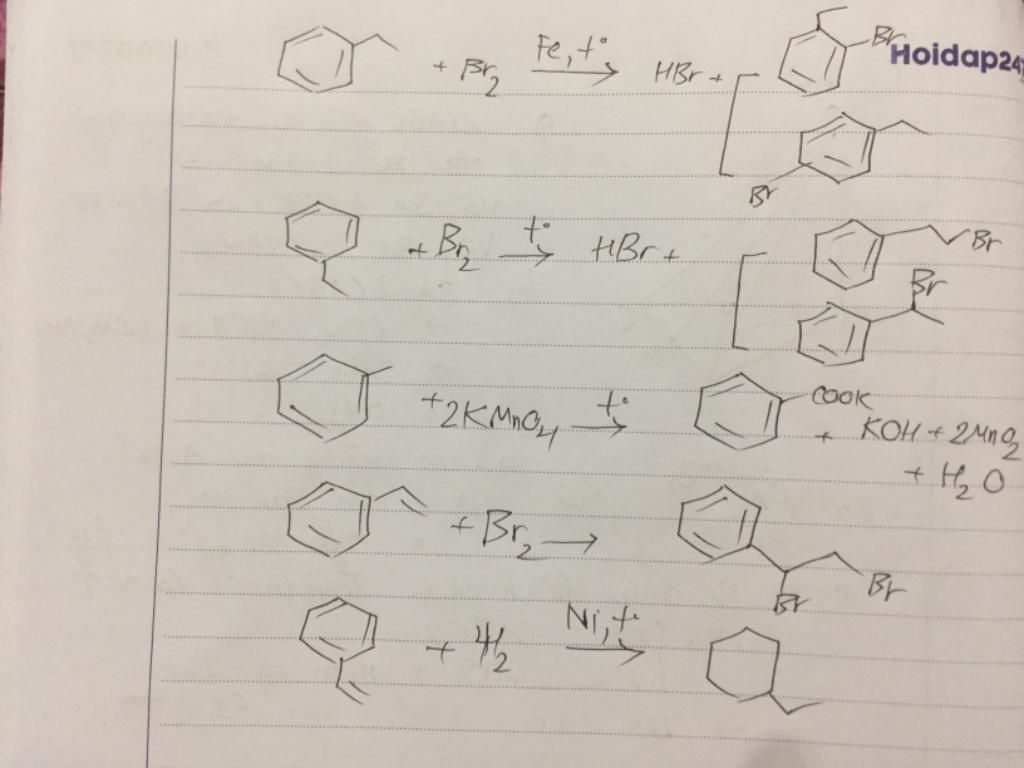 + Br2 Fe, t° → HBr + Br
Hoidap247
Br
+ Br2 t° → HBr + Br
Br
+ 2KMnO4 t° → COOK
+ KOH + 2MnO2
+ H2O
+ Br2 → Br
Br
+ 4H2 Ni, t° →